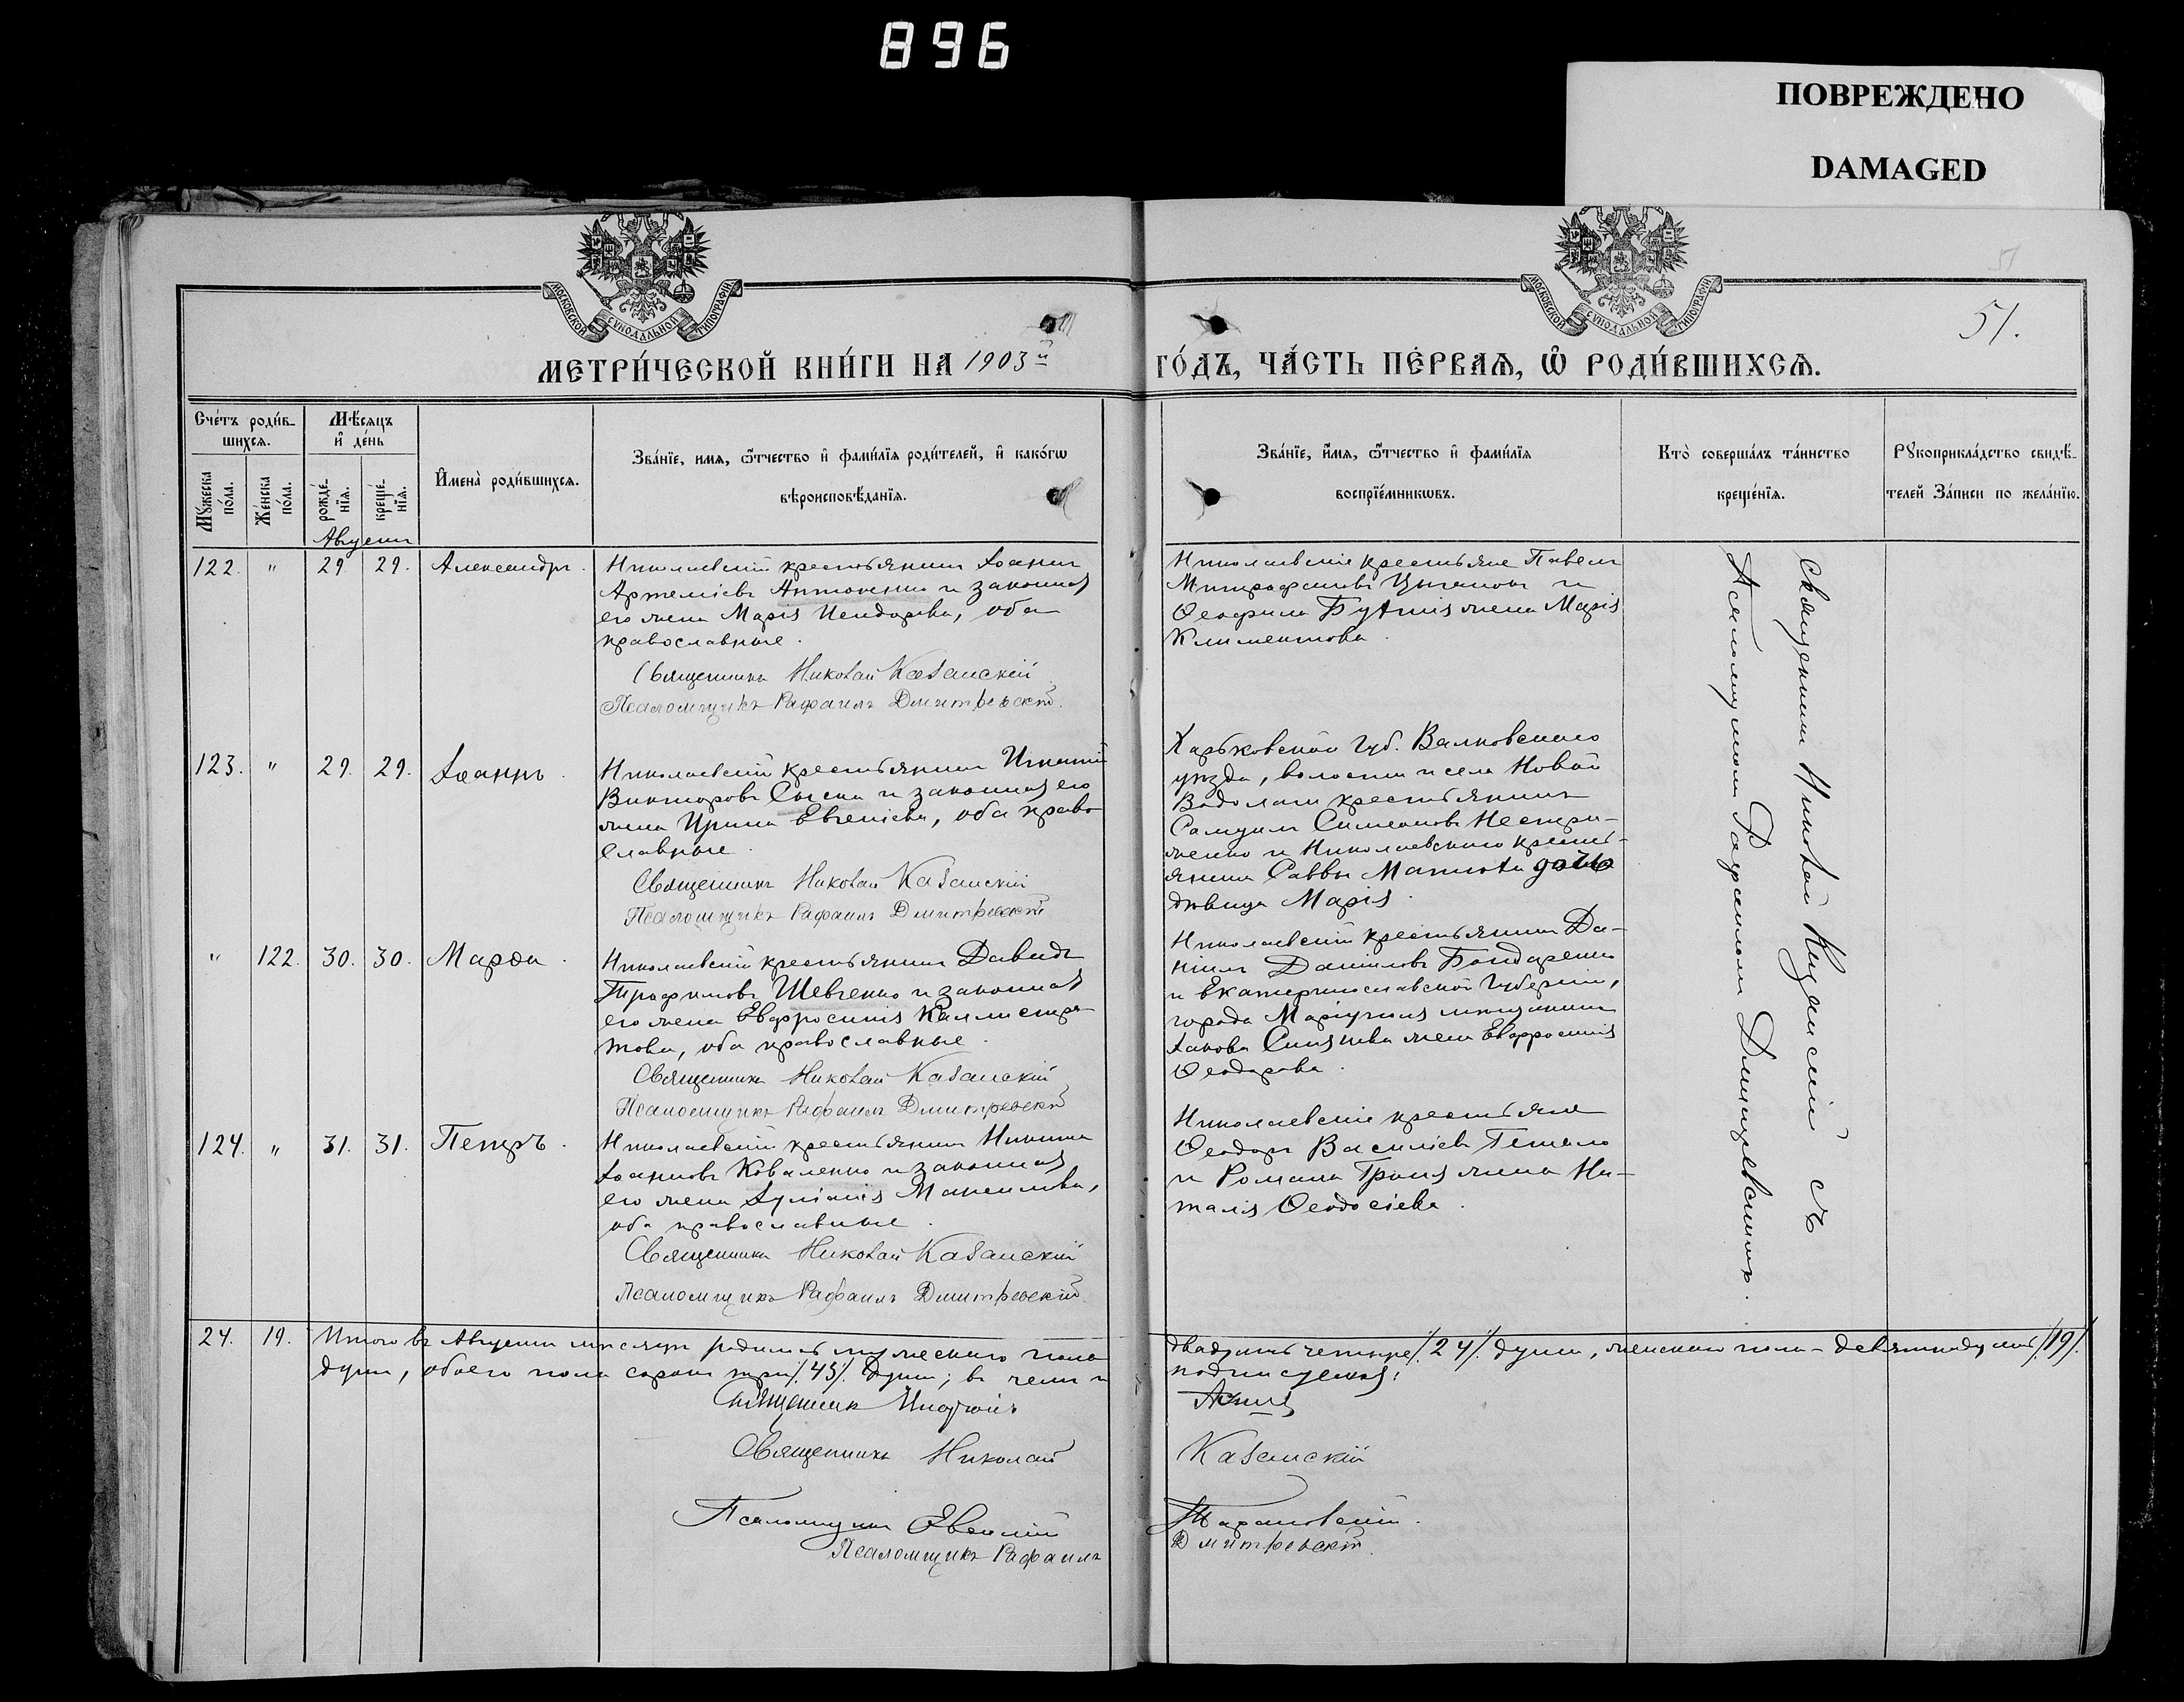 896
ПОВРЕЖДЕНО
DAMAGED
МОСКОВСКОЙ СѴНОДАЛЬНОЙ ТИПОГРАФІИ
МОСКОВСКОЙ СѴНОДАЛЬНОЙ ТИПОГРАФІИ
51
51.
МЕТРИ́ЧЕСКОЙ КНИ́ГИ НА 1903й
ГО́ДЪ, ЧА́СТЬ ПЕ́РВАѦ, Ѽ РОДИ́ВШИХСѦ.
Сче́тъ роди́в-
шихсѧ.
Мꙋ́жеска по́ла.
Же́нска по́ла.
Мѣ́сѧцъ
и҆ де́нь
рожде́-нїѧ.
креще́-нїѧ.
И҆мена̀ роди́вшихсѧ.
Зва́нїе, имѧ, ѻ҆́тчество и҆ фами́лїѧ роди́телей, и҆ како́гѡ
вѣроисповѣ́данїѧ.
Зва́нїе, и҆́мѧ, ѻ҆́тчество и҆ фами́лїѧ
воспрїе́мникѡвъ.
Кто̀ соверша́лъ та́инство
креще́нїѧ.
Рꙋкоприкла́дство свидѣ́-
телей За́писи по жела́нїю.
Августъ
122. " 29. 29. Александръ.
Николаевскій крестьянинъ Іоаннъ
Артеміевъ Антоненко и законная
его жена Марія Исидорова, оба
православные.
Священникъ Николай Казанскій
Псаломщикъ Рафаилъ Дмитревскій.
Николаевскіе крестьяне Павелъ
Митрофановъ Цыганокъ и
Ѳеофила жена Марія
Климентова.
123. " 29. 29. Іоаннъ.
Николаевскій крестьянинъ Игнатій
Викторовъ и законная его
жена Ирина Евгеніева, оба право-
славные.
Священникъ Николай Казанскій
Псаломщикъ Рафаилъ Дмитревскій
Харьковской губ. Валковскаго
уѣзда, волости и села Новой
Водолаги крестьянинъ
Самуилъ Симеоновъ
и Николаевскаго кресть-
янина Саввы дочь
дѣвица Марія.
" 122. 30. 30. Марѳа.
Николаевскій крестьянинъ Давидъ
Трофимовъ Шевченко и законная
его жена Евфросинія Каллистра-
това, оба православные.
Священникъ Николай Казанскій
Псаломщикъ Рафаилъ Дмитревскій
Николаевскій крестьянинъ Да-
ніилъ Даніиловъ Бондаренко
и Екатеринославской губерніи,
города Маріуполя мѣщанина
Іакова жена Евфросинія
Ѳеодорова.
124. " 31. 31. Петръ.
Николаевскій крестьянинъ Никита
Іоанновъ Коваленко и законная
его жена Іуліанія
оба православные.
Священникъ Николай Казанскій
Псаломщикъ Рафаилъ Дмитревскій.
Николаевскіе крестьяне
Ѳеодоръ Василіевъ
и Романа жена На-
талія Ѳеодосіева.
Священникъ Николай Казанскій съ
Псаломщикомъ Рафаиломъ Дмитревскимъ.
24. 19. Итого въ Августѣ мѣсяцѣ родилось мужескаго пола
двадцать четыре /.24/. души, женскаго пола - девятнадцать /.19/.
душъ, обоего пола сорокъ три /.43/. души; въ чемъ и
подписуемся:
Священникъ
Священникъ Николай
Казанскій
Псаломщикъ
Тарановскій.
Псаломщикъ Рафаилъ
Дмитревскій.